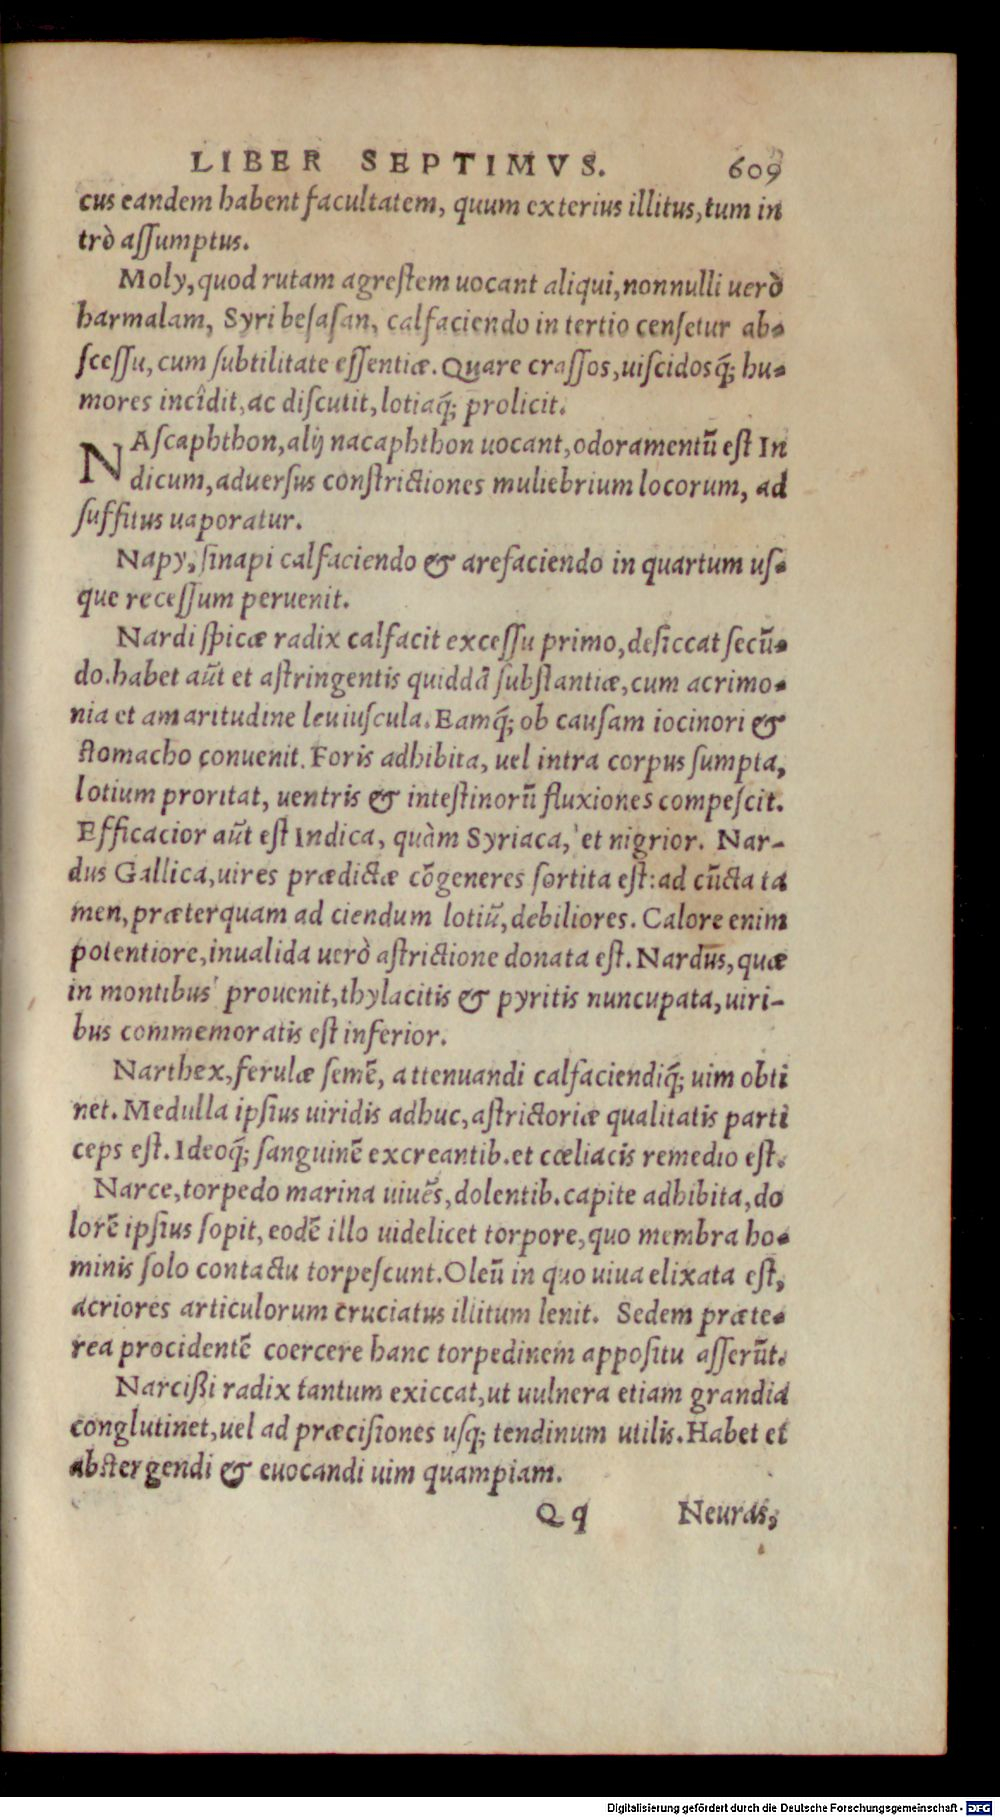 LIBER SEPTIMVS. 609
cus eandem habent facultatem, quum exterius illitus, tum in
trò aſſumptus.
Moly, quod rutam agreſtem uocant aliqui, nonnulli uerò
harmalam, Syri beſaſan, calfaciendo in tertio cenſetur ab-
ſceſſu, cum ſubtilitate eſſentiæ. Quare craſſos, uiſcidosq́; hu-
mores incîdit, ac diſcutit, lotiaq́; prolicit.
NAſcaphthon, alij nacaphthon uocant, odoramentũ eſt In
dicum, aduerſus conſtrictiones muliebrium locorum, ad
ſuffitus uaporatur.
Napy, ſinapi calfaciendo & arefaciendo in quartum uſ-
que receſſum peruenit.
Nardi ſpicæ radix calfacit exceſſu primo, deſiccat ſecũ-
do. habet aũt et aſtringentis quiddã ſubſtantiæ, cum acrimo-
nia et amaritudine leuiuſcula. Eamq́; ob cauſam iocinori &
ſtomacho conuenit. Foris adhibita, uel intra corpus ſumpta,
lotium proritat, uentris & inteſtinorũ fluxiones compeſcit.
Efficacior aũt eſt Indica, quàm Syriaca, et nigrior. Nar-
dus Gallica, uires prædictæ cõgeneres ſortita eſt: ad cũcta ta
men, præterquam ad ciendum lotiũ, debiliores. Calore enim
potentiore, inualida uerò aſtrictione donata eſt. Nardus, quæ
in montibus prouenit, thylacitis & pyritis nuncupata, uiri-
bus commemoratis eſt inferior.
Narthex, ferulæ ſemẽ, attenuandi calfaciendiq́; uim obti
net. Medulla ipſius uiridis adhuc, aſtrictoriæ qualitatis parti
ceps eſt. Ideoq́; ſanguinẽ excreantib. et cœliacis remedio eſt.
Narce, torpedo marina uiuẽs, dolentib. capite adhibita, do
lorẽ ipſius ſopit, eodẽ illo uidelicet torpore, quo membra ho-
minis ſolo contactu torpeſcunt. Oleũ in quo uiua elixata eſt,
acriores articulorum cruciatus illitum lenit. Sedem præte-
rea procidentẽ coercere hanc torpedinem appoſitu aſſerũt.
Narciſſi radix tantum exiccat, ut uulnera etiam grandia
conglutinet, uel ad præciſiones uſq; tendinum utilis. Habet et
abſtergendi & euocandi uim quampiam.
Qq Neuras,
Digitalisierung gefördert durch die Deutsche Forschungsgemeinschaft - DFG